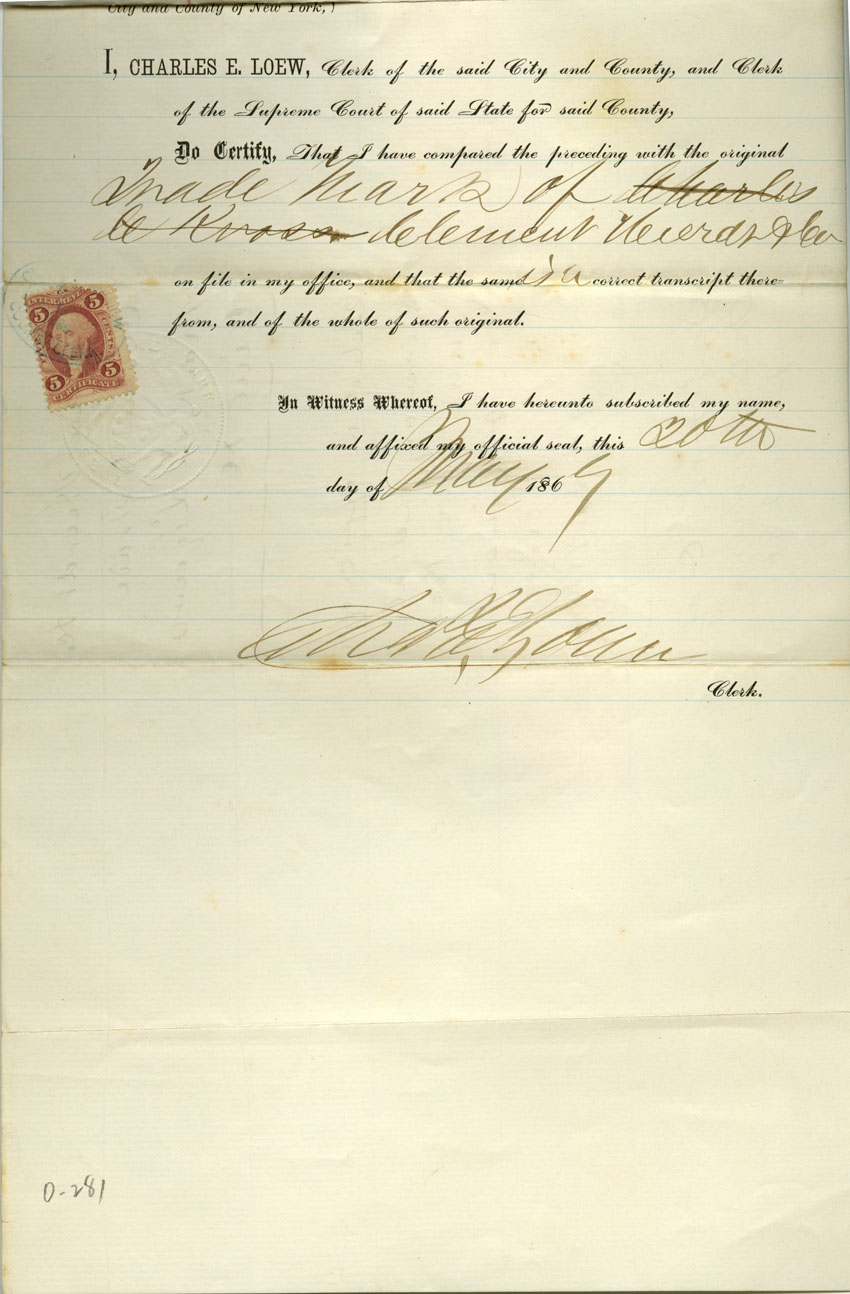 City and County of New York,
I, CHARLES E. LOEW, Clerk of the said City and County, and Clerk
of the Supreme Court of said State for said County,
Do Certify, That I have compared the preceding with the original
Trade Mark of Charles
Clement Heerdt & Co
on file in my office, and that the same is a correct transcript there-
from, and of the whole of such original.
INTER. REV.
5 5
CENTS
5 5
CERTIFICATE
In Witness Whereof, I have hereunto subscribed my name,
and affixed my official seal, this 20th
day of May 1867
Chas E Loew
Clerk.
0-281